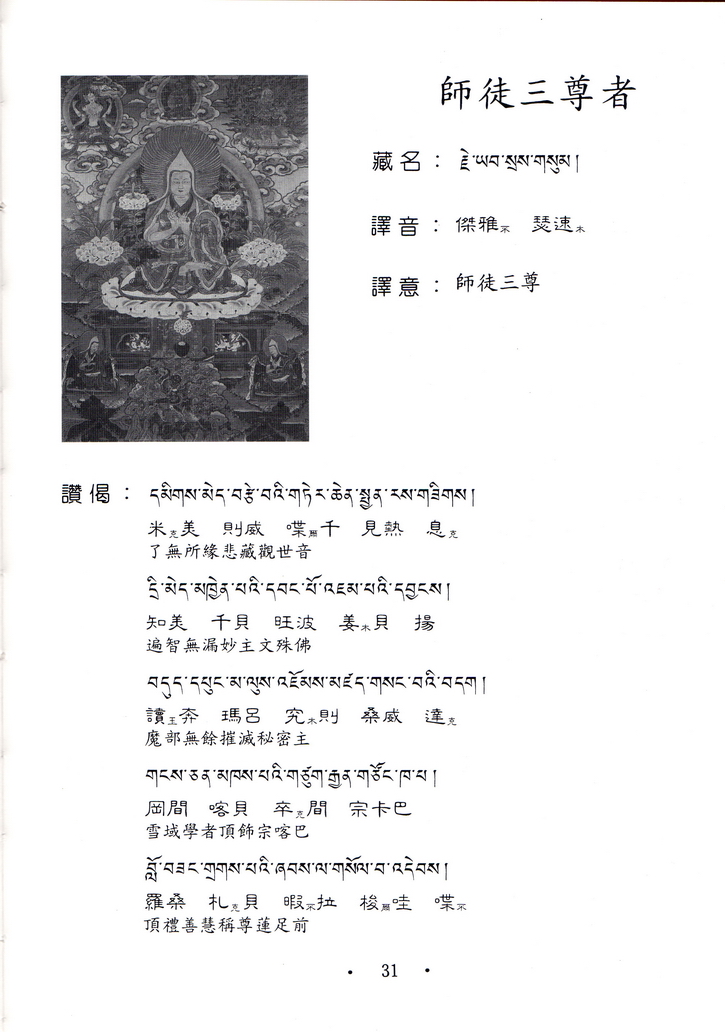 師徒三尊者
藏名：རྗེ་ཡབ་སྲས་གསུམ།
譯音：傑雅不 瑟速木
譯意：師徒三尊
讚偈：དམིགས་མེད་བརྩེ་བའི་གཏེར་ཆེན་སྤྱན་རས་གཟིགས།
米克美 則威 喋爾千 見熱 息克
了無所緣悲藏觀世音
དྲི་མེད་མཁྱེན་པའི་དབང་པོ་འཇམ་པའི་དབྱངས།
知美 千貝 旺波 姜木貝 揚
遍智無漏妙主文殊佛
བདུད་དཔུང་མ་ལུས་འཇོམས་མཛད་གསང་བའི་བདག།
讀王奔 瑪呂 究木則 桑威 達克
魔部無餘摧滅秘密主
གངས་ཅན་མཁས་པའི་གཙུག་རྒྱན་གཙོང་ཁ་པ།
岡間 喀貝 卒克間 宗卡巴
雪域學者頂飾宗喀巴
བློ་བཟང་གྲགས་པའི་ཞབས་ལ་གསོལ་བ་འདེབས།
羅桑 札克貝 暇不拉 梭爾哇 喋不
頂禮善慧稱尊蓮足前
• 31 •